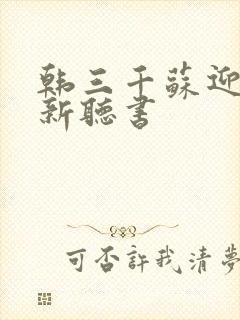 韩三千蘇迎
新聽書
可否許我清夢